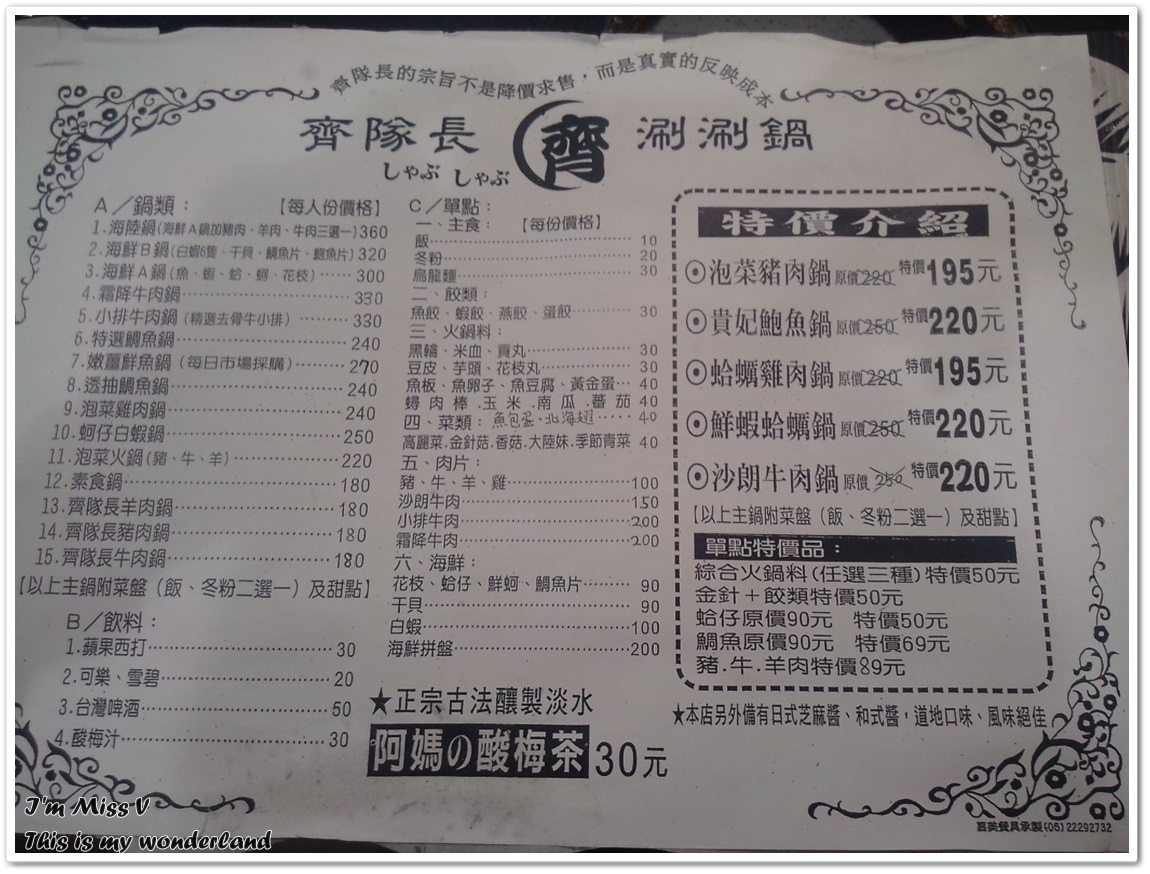 齊隊長的宗旨不是降價求售，而是真實的反映成本
齊隊長 齊 涮涮鍋
しゃぶ しゃぶ
A／鍋類： 【每人份價格】
1.海陸鍋(海鮮A鍋加豬肉、羊肉、牛肉三選一)360
2.海鮮B鍋(白蝦6隻、干貝、鯛魚片、鮑魚片)320
3.海鮮A鍋(魚、蝦、蛤、蚵、花枝)……300
4.霜降牛肉鍋……330
5.小排牛肉鍋(精選去骨牛小排)……330
6.特選鯛魚鍋……240
7.嫩薑鮮魚鍋(每日市場採購)……270
8.透抽鯛魚鍋……240
9.泡菜雞肉鍋……240
10.蚵仔白蝦鍋……250
11.泡菜火鍋(豬、牛、羊)……220
12.素食鍋……180
13.齊隊長羊肉鍋……180
14.齊隊長豬肉鍋……180
15.齊隊長牛肉鍋……180
【以上主鍋附菜盤（飯、冬粉二選一）及甜點】
B／飲料：
1.蘋果西打……30
2.可樂、雪碧……20
3.台灣啤酒……50
4.酸梅汁……30
C／單點：
一、主食： 【每份價格】
飯……10
冬粉……20
烏龍麵……30
二、餃類：
魚餃、蝦餃、燕餃、蛋餃……30
三、火鍋料：
黑輪、米血、貢丸……30
豆皮、芋頭、花枝丸……30
魚板、魚卵子、魚豆腐、黃金蛋…40
蟳肉棒.玉米.南瓜.蕃茄 40
四、菜類：魚包蛋、北海翅……40
高麗菜.金針菇.香菇.大陸妹.季節青菜 40
五、肉片：
豬、牛、羊、雞……100
沙朗牛肉……150
小排牛肉……200
霜降牛肉……200
六、海鮮：
花枝、蛤仔、鮮蚵、鯛魚片……90
干貝……90
白蝦……100
海鮮拼盤……200
★正宗古法釀製淡水
阿媽の酸梅茶 30元
特價介紹
⊙泡菜豬肉鍋 原價220 特價195元
⊙貴妃鮑魚鍋 原價250 特價220元
⊙蛤蠣雞肉鍋 原價220 特價195元
⊙鮮蝦蛤蠣鍋 原價250 特價220元
⊙沙朗牛肉鍋 原價250 特價220元
【以上主鍋附菜盤（飯、冬粉二選一）及甜點】
單點特價品：
綜合火鍋料(任選三種)特價50元
金針＋餃類特價50元
蛤仔原價90元 特價50元
鯛魚原價90元 特價69元
豬.牛.羊肉特價89元
★本店另外備有日式芝麻醬、和式醬，道地口味、風味絕佳
嘉美餐具承製(06)22292732
I'm Miss V
This is my wonderland